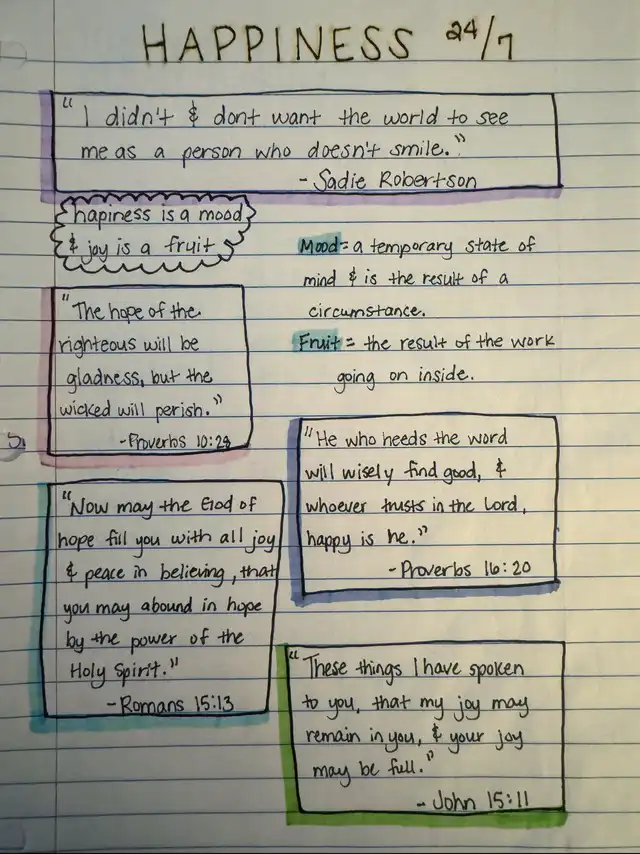 HAPPINESS 24/7
"I didn't & dont want the world to see
me as a person who doesn't smile."
- Sadie Robertson
hapiness is a mood
& joy is a fruit
Mood= a temporary state of
mind & is the result of a
circumstance.
Fruit = the result of the work
going on inside.
"The hope of the
righteous will be
gladness, but the
wicked will perish."
-Proverbs 10:28
"He who heeds the word
will wisely find good, &
whoever trusts in the Lord,
happy is he."
-Proverbs 16:20
"Now may the God of
hope fill you with all joy
& peace in believing, that
you may abound in hope
by the power of the
Holy Spirit."
-Romans 15:13
"These things I have spoken
to you, that my joy may
remain in you, & your joy
may be full."
- John 15:11